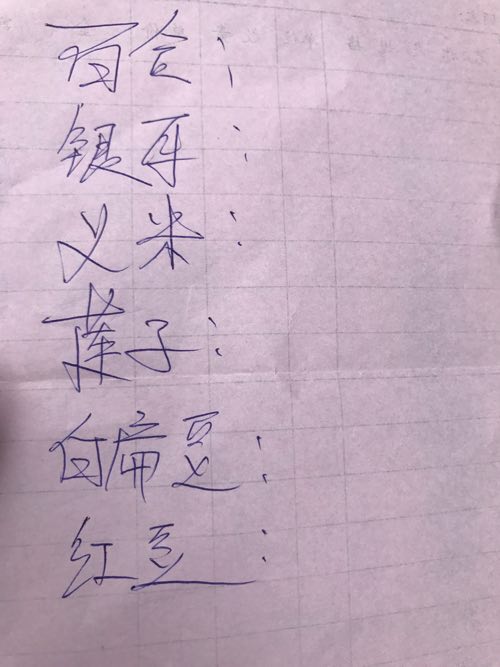 百合：
银耳：
义米：
莲子：
白扁豆：
红豆：